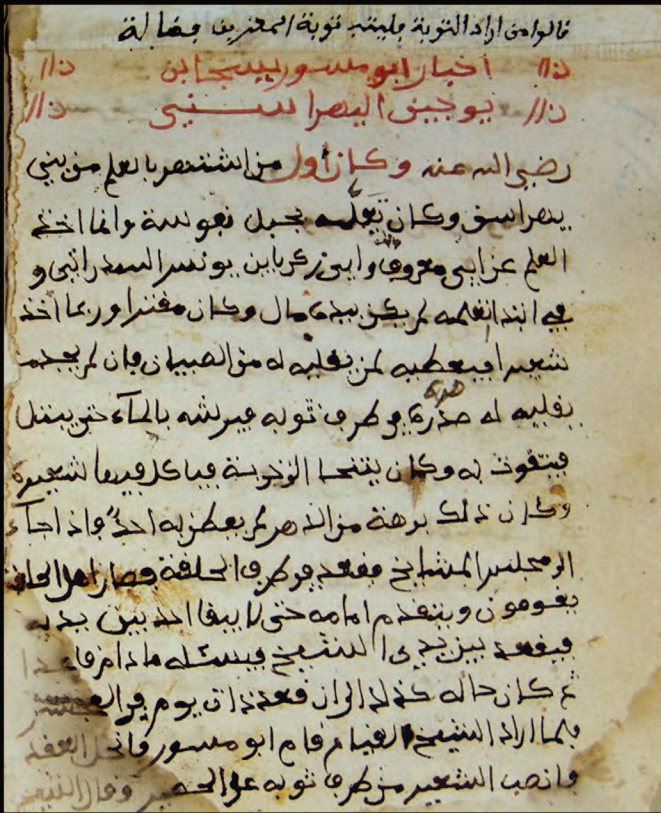 قالوا من اراد التوبة فليتب توبة المعترف فقاله
اخبار ابو مسور يسجا بن
يوجين اليهراسنى
رضي الله عنه وكان اول من اشتهر بالعلم من بني
يهراسن وكان تعلمه بجبل نفوسة وانما اخذ
العلم عن ابي معروف وابي زكرياء بن يونس السدراتي و
في ابتدا تعلمه لم يكن بيده مال وكان مقترا وربما اخذ
شعيرا فيعطيه لمن يقليه له من الصبيان فان لم يجد من
يقليه له صره في طرف ثوبه فيرشه بالماء حتى يبتل
فيتقوت به وكان يتنحا الى خربة فياكل فيها شعيره
وكان ذلك برهة من الدهر لم يفطن به احد واذا جاء
الى مجلس المشايخ فقعد في طرف الحلقة فصار اهل الحلقة
يقومون ويتقدم امامه حتى لا يبقا احد بين يديه
فيقعد بين يدي الشيخ فيسئله ما دام قاعدا
ثم كان حاله كذلك الى ان قعد ذات يوم في المجلس
فلما اراد الشيخ القيام قام ابو مسور فانحل العقد
فانصب الشعير من طرف ثوبه على الحصير وقال الشيخ